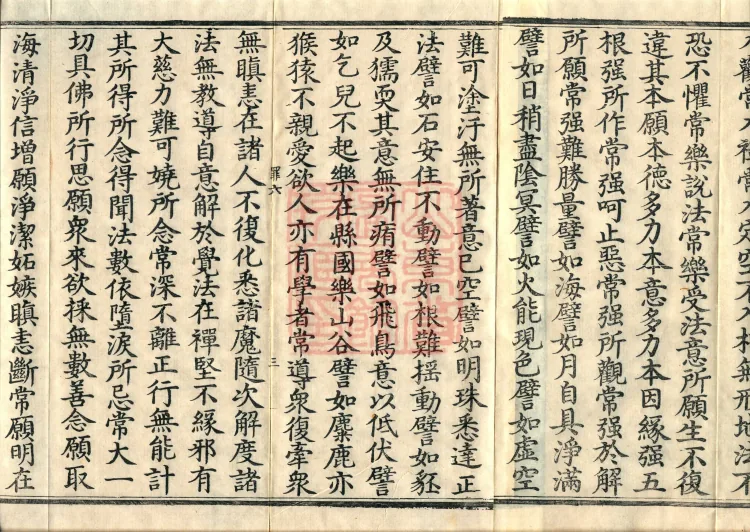 恐不懼常樂說法常樂受法意所願生不復
違其本願本德多力本意多力本因緣强五
根强所作常强呵止惡常强所觀常强於解
所願常强難勝量譬如海譬如月自具淨滿
譬如日稍盡陰冥譬如火能現色譬如虛空
難可塗汙無所著意已空譬如明珠悉達正
法譬如石安住不動譬如根難揺動譬如豾
及獳耎其意無所痟譬如飛鳥意以低伏譬
如乞兒不起樂在縣國樂山谷譬如麋鹿亦
猴猿不親愛欲人亦有學者常導衆復牽衆
罪六
三
無瞋恚在諸人不復化悉諸魔隨次解度諸
法無教導自意解於覺法在禪堅不緣邪有
大慈力難可嬈所念常深不離正行無能計
其所得所念得聞法數依墮淚所忌常大一
切具佛所行思願衆來欲採無數善念願取
海清淨信增願淨潔妬嫉瞋恚斷常願明在